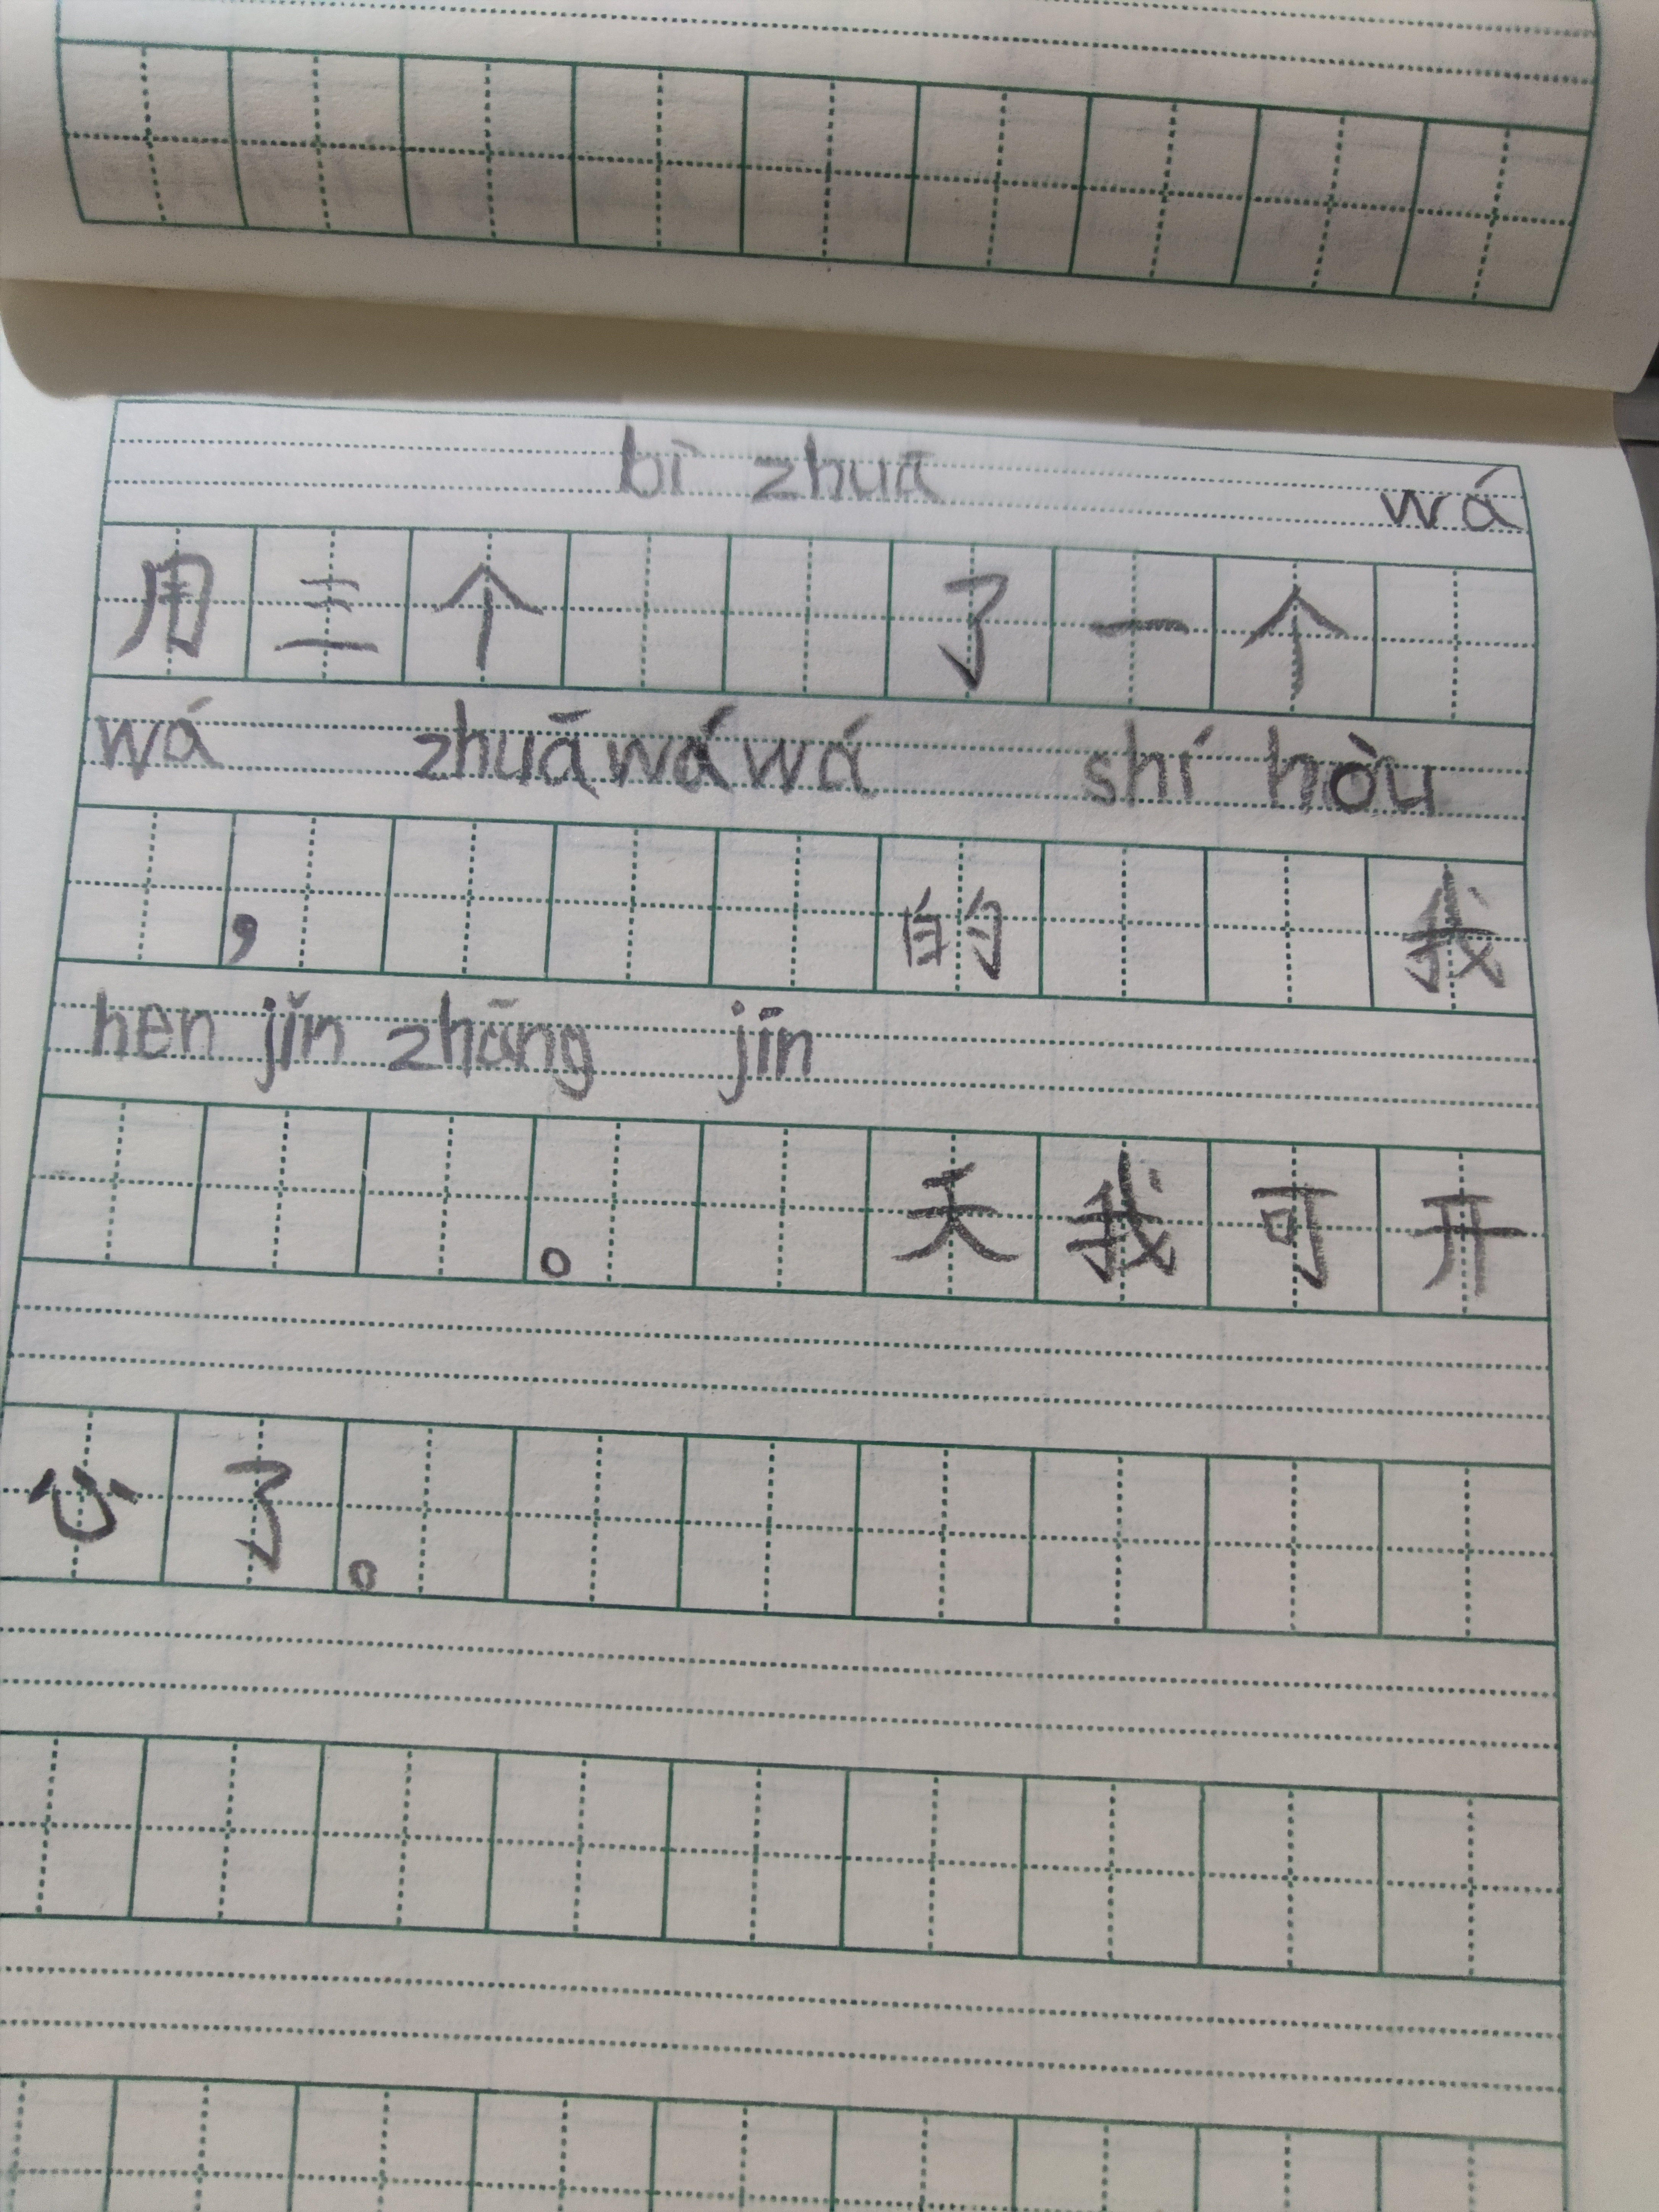 bì zhuā wá
用三个了一个
wá zhuāwáwá shí hòu
，的我
hen jǐn zhāng jīn
。天我可开
心了。